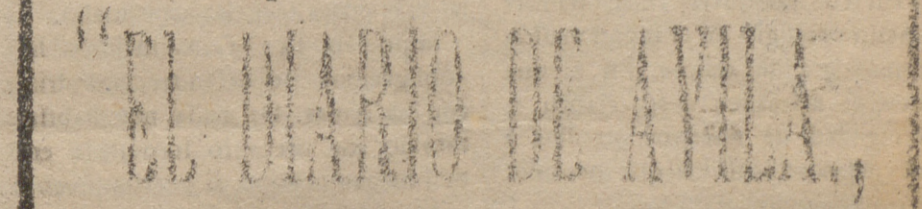 “EL DIARIO DE AVILA.,